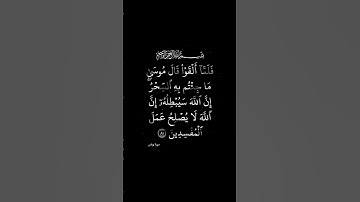 بِسْمِ اللَّهِ الرَّحْمَٰنِ الرَّحِيمِ
فَلَمَّآ أَلْقَوْا۟ قَالَ مُوسَىٰ
مَا جِئْتُم بِهِ ٱلسِّحْرُ
إِنَّ ٱللَّهَ سَيُبْطِلُهُۥٓ إِنَّ
ٱللَّهَ لَا يُصْلِحُ عَمَلَ
ٱلْمُفْسِدِينَ ٨١
سورة يونس